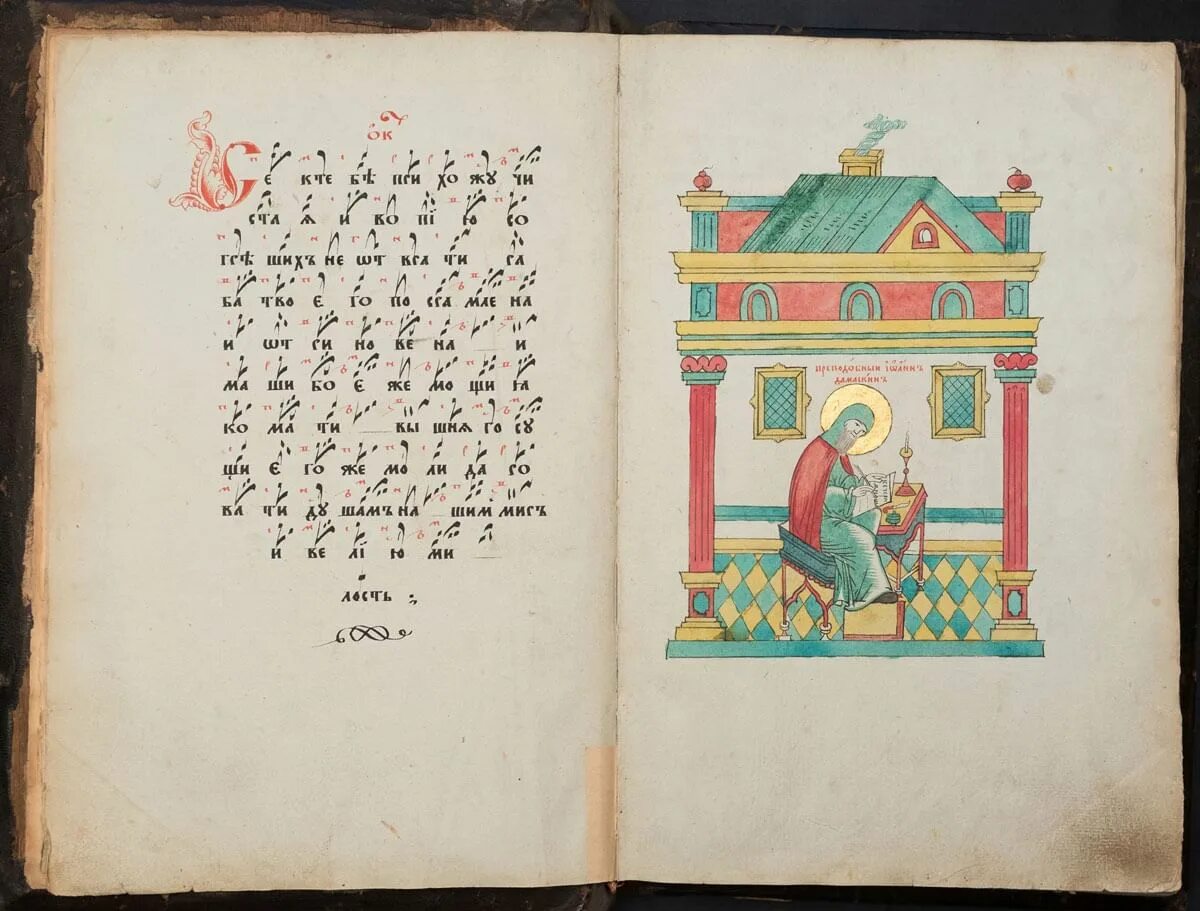 ѻк
Се кте бѣ при хо жу чи
ста ѧ и во пі ю со
грѣ шихъ не ѿт вра ти ра
ба тво є го по сра мле на
и ѿт ри но ве на и
ма ши бо є же мо щи ꙗ
ко ма ти вы шнѧ го су
щи є го же мо ли да ро
ва ти ду шамъ на шим миръ
и ве лі ю ми
лость ;
преподобныи іѡаннъ
дамаскинъ